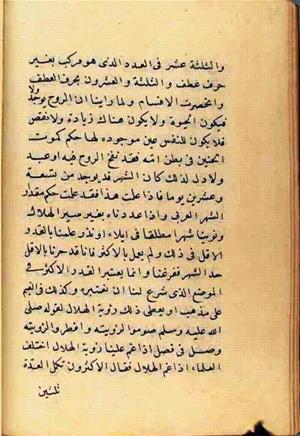 والثلثة عشر فى العدد الذى هو مركب بغير
حرف عطف و الثلثة والعشرون بحرف العطف
وانحصرت الاقسام ولما راينا ان الروح يوجد ولا
فيكون الحيوة ولا يكون هناك زيادة ولا نقص
فلا يكون للنفس عين موجوده لها حكم كموت
الجنين فى بطن امه فقد نفخ الروح فيه او عبد
ولادل لذلك كان الشهر قد يوجد من تسعة
وعشرين يوما فاذا علمت هذا فقد علمت حكم مقدار
الشهر العربى واذا عددناه بغير سير الهلال
ونوينا شهرا مطلقا فى ايلاء او نذر علمنا بالقدر
الاقل فى ذلك ولم يعمل بالاكثر فاناقد حزنا بالاقل
حد الشهر ففرغنا وانما يعتبر القدر الاكثر فى
الموضع الذى شرع لنا ان نعتبره وكذلك فى الغيم
على مذهب او يعطى ذلك رؤية الهلال لقوله صلى
الله عليه وسلم صوموا لرؤيته وافطروا لرؤيته
وصل فى فصل اذا غم علينا رؤية الهلال اختلف
العلماء اذا غم الهلال فقال الاكثرون تكمل العدة
ثلثين